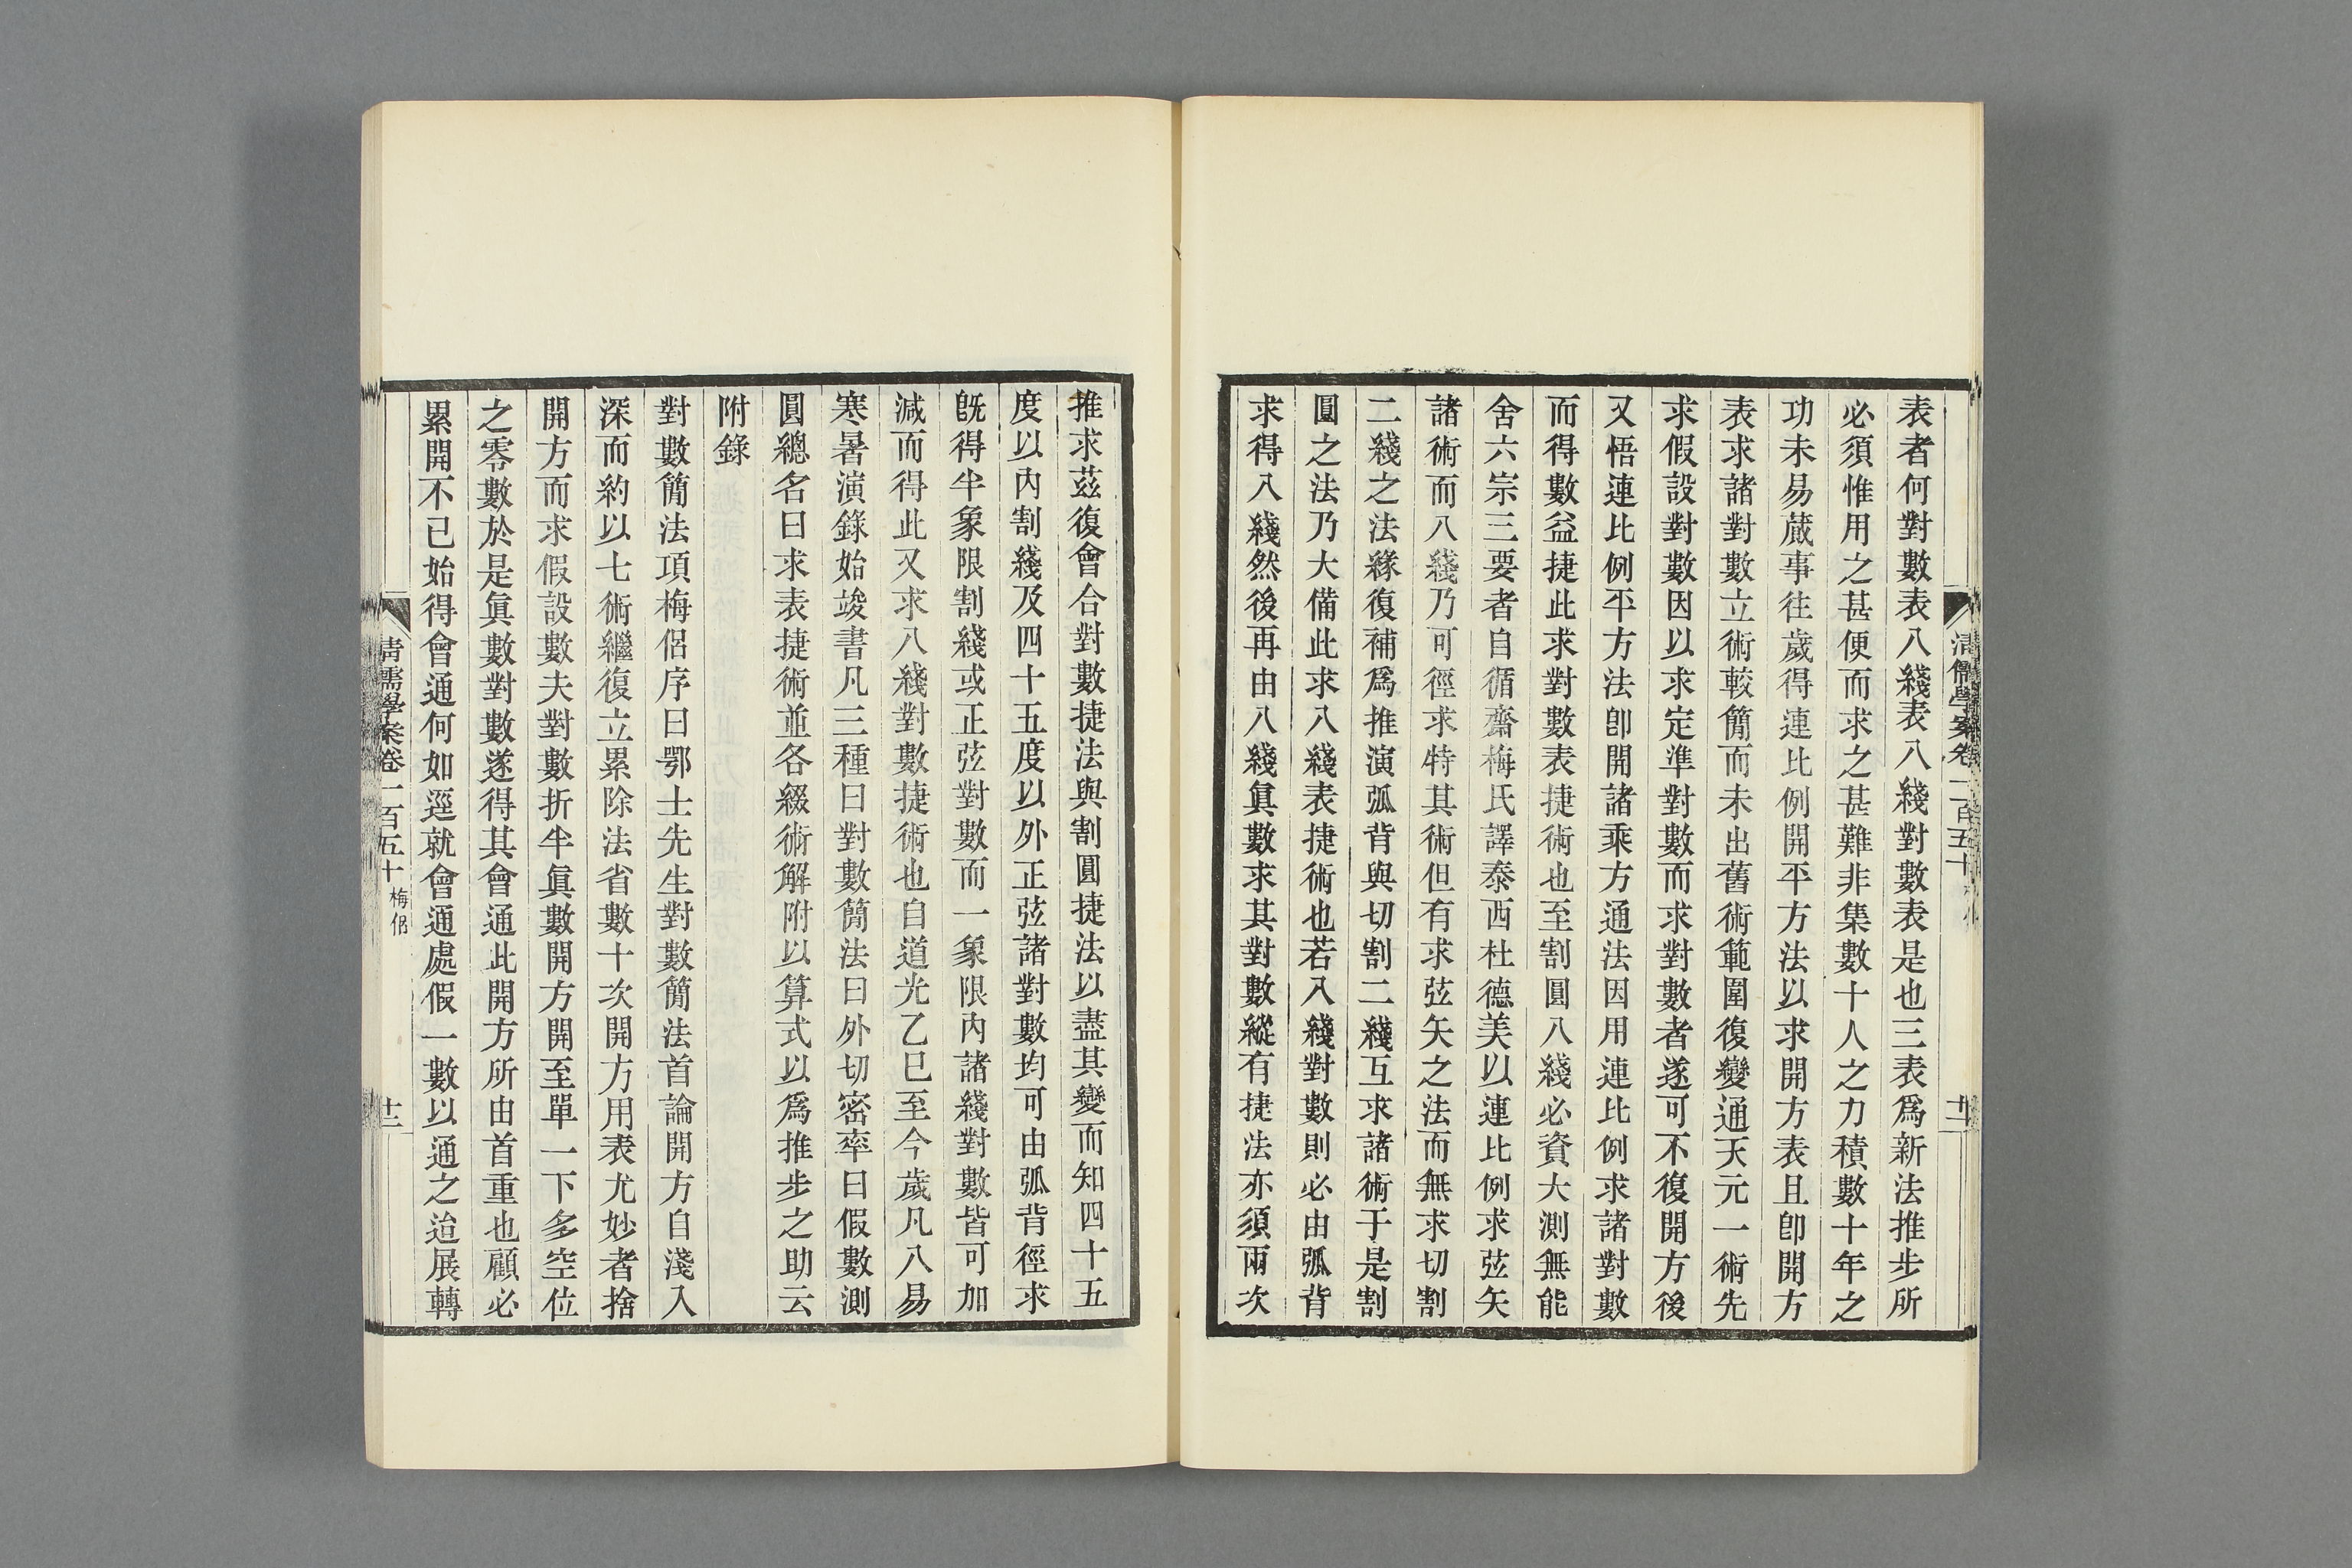 清儒學案卷一百五十
十二
表者何對數表八綫表八綫對數表是也三表爲新法推步所
必須惟用之甚便而求之甚難非集數十人之力積數十年之
功未易蕆事往歲得連比例開平方法以求開方表且卽開方
表求諸對數立術較簡而未出舊術範圍復變通天元一術先
求假設對數因以求定準對數而求對數者遂可不復開方後
又悟連比例平方法卽開諸乘方通法因用連比例求諸對數
而得數益捷此求對數表捷術也至割圓八綫必資大測無能
舍六宗三要者自循齋梅氏譯泰西杜德美以連比例求弦矢
諸術而八綫乃可徑求特其術但有求弦矢之法而無求切割
二綫之法緣復補爲推演弧背與切割二綫互求諸術于是割
圓之法乃大備此求八綫表捷術也若八綫對數則必由弧背
求得八綫然後再由八綫眞數求其對數縱有捷法亦須兩次
推求茲復會合對數捷法與割圓捷法以盡其變而知四十五
度以內割綫及四十五度以外正弦諸對數均可由弧背徑求
旣得半象限割綫或正弦對數而一象限內諸綫對數皆可加
減而得此又求八綫對數捷術也自道光乙巳至今歲凡八易
寒暑演錄始竣書凡三種曰對數簡法曰外切密率曰假數測
圓總名曰求表捷術並各綴術解附以算式以爲推步之助云
附錄
對數簡法項梅侶序曰鄂士先生對數簡法首論開方自淺入
深而約以七術繼復立累除法省數十次開方用表尤妙者捨
開方而求假設數夫對數折半眞數開方開至單一下多空位
之零數於是眞數對數遂得其會通此開方所由首重也顧必
累開不已始得會通何如逕就會通處假一數以通之迨展轉
清儒學案卷一百五十 梅侶
十三